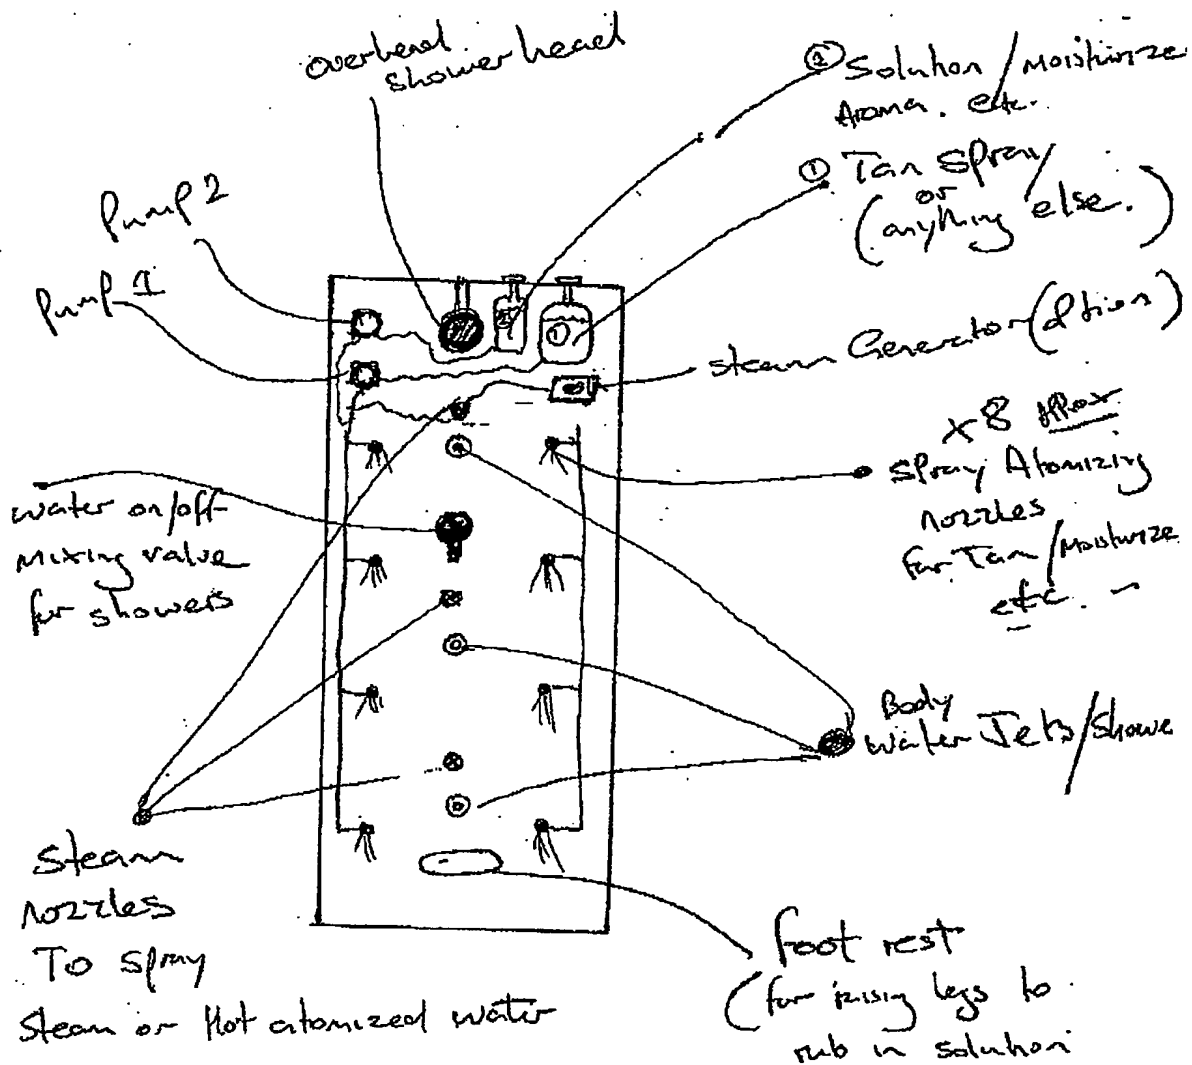 overhead
shower head
② Solution / Moisturize
Aroma. etc.
① Tan Spray /
or
(anything else.)
Pump 2
Pump 1
①
Steam Generator (Option)
x8 Aprox
Spray Atomizing
nozzles
for Tan / Moisturize
etc.
water on/off
mixing valve
for showers
Body
water Jets / Showe
Steam
nozzles
To spray
Steam or Hot atomized water
foot rest
(for rising legs to
rub in solution